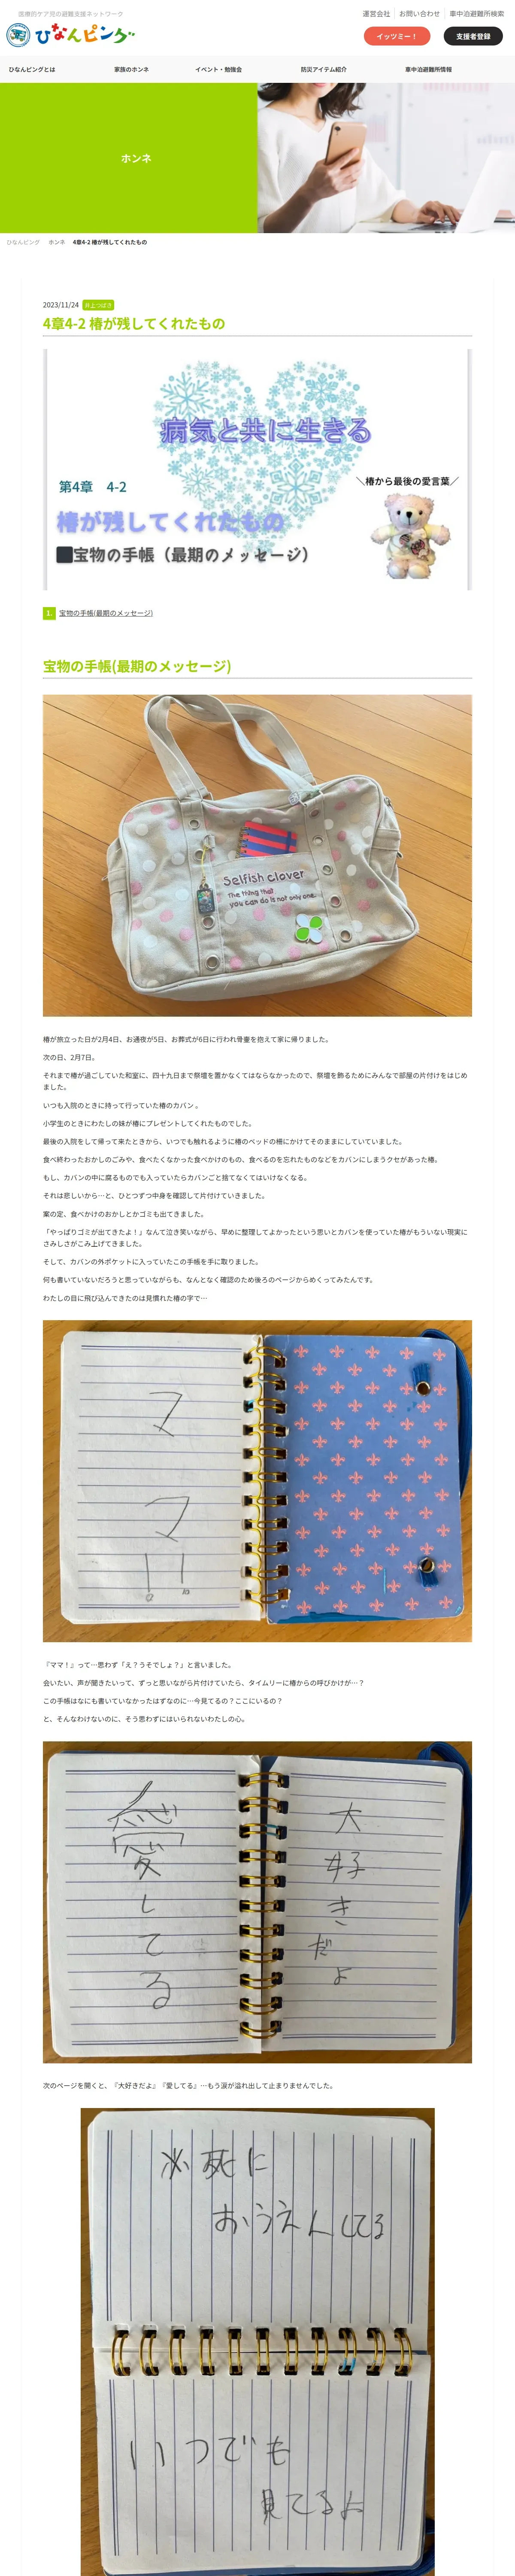 医療的ケア児の避難支援ネットワーク
ひなんピング
運営会社
お問い合わせ
車中泊避難所検索
イッツミー！
支援者登録
ひなんピングとは
家族のホンネ
イベント・勉強会
防災アイテム紹介
車中泊避難所情報
ホンネ
ひなんピング ホンネ 4章4-2 椿が残してくれたもの
2023/11/24 井上つばき
4章4-2 椿が残してくれたもの
病気と共に生きる
第4章 4-2
＼椿から最後の愛言葉／
椿が残してくれたもの
■宝物の手帳（最期のメッセージ）
1. 宝物の手帳(最期のメッセージ)
宝物の手帳(最期のメッセージ)
Selfish clover
The thing that
you can do is not only one.
椿が旅立った日が2月4日、お通夜が5日、お葬式が6日に行われ骨壷を抱えて家に帰りました。
次の日、2月7日。
それまで椿が過ごしていた和室に、四十九日まで祭壇を置かなくてはならなかったので、祭壇を飾るためにみんなで部屋の片付けをはじめ
ました。
いつも入院のときに持って行っていた椿のカバン 。
小学生のときにわたしの妹が椿にプレゼントしてくれたものでした。
最後の入院をして帰って来たときから、いつでも触れるように椿のベッドの柵にかけてそのままにしていていました。
食べ終わったおかしのごみや、食べたくなかった食べかけのもの、食べるのを忘れたものなどをカバンにしまうクセがあった椿。
もし、カバンの中に腐るものでも入っていたらカバンごと捨てなくてはいけなくなる。
それは悲しいから…と、ひとつずつ中身を確認して片付けていきました。
案の定、食べかけのおかしとかゴミも出てきました。
「やっぱりゴミが出てきたよ！」なんて泣き笑いながら、早めに整理してよかったという思いとカバンを使っていた椿がもういない現実に
さみしさがこみ上げてきました。
そして、カバンの外ポケットに入っていたこの手帳を手に取りました。
何も書いていないだろうと思っていながらも、なんとなく確認のため後ろのページからめくってみたんです。
わたしの目に飛び込んできたのは見慣れた椿の字で…
ママ!!
『ママ！』って…思わず「え？うそでしょ？」と言いました。
会いたい、声が聞きたいって、ずっと思いながら片付けていたら、タイムリーに椿からの呼びかけが…？
この手帳はなにも書いていなかったはずなのに…今見てるの？ここにいるの？
と、そんなわけないのに、そう思わずにはいられないわたしの心。
大好きだよ
愛してる
次のページを開くと、『大好きだよ』『愛してる』…もう涙が溢れ出して止まりませんでした。
必死に
おうえんしてる
いつでも
見てるよ